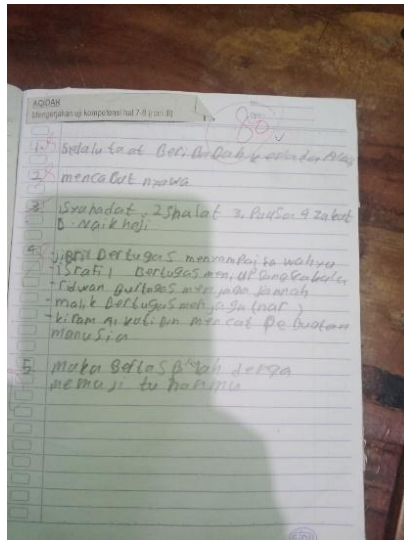 AQIDAH
Mengerjakan uji kompetensi hal 7-8 (rom B)
80
1. Selalu taat Beribadah kepada Allah
2. mencabut nyawa
3. 1syahadat, 2shalat 3. Puasa. 4 zakat
5. Naik haji
4. -jibril bertugas menyampaika wahyu
-israfil Bertugas meniup sangkakala
-ridwan Bertugas menjaga jannah
-malik bertugas menjaga (nar)
-kiram katibin mencat Perbuatan
manusia
5. maka Bertasbihlah denga
memuji tuhanmu